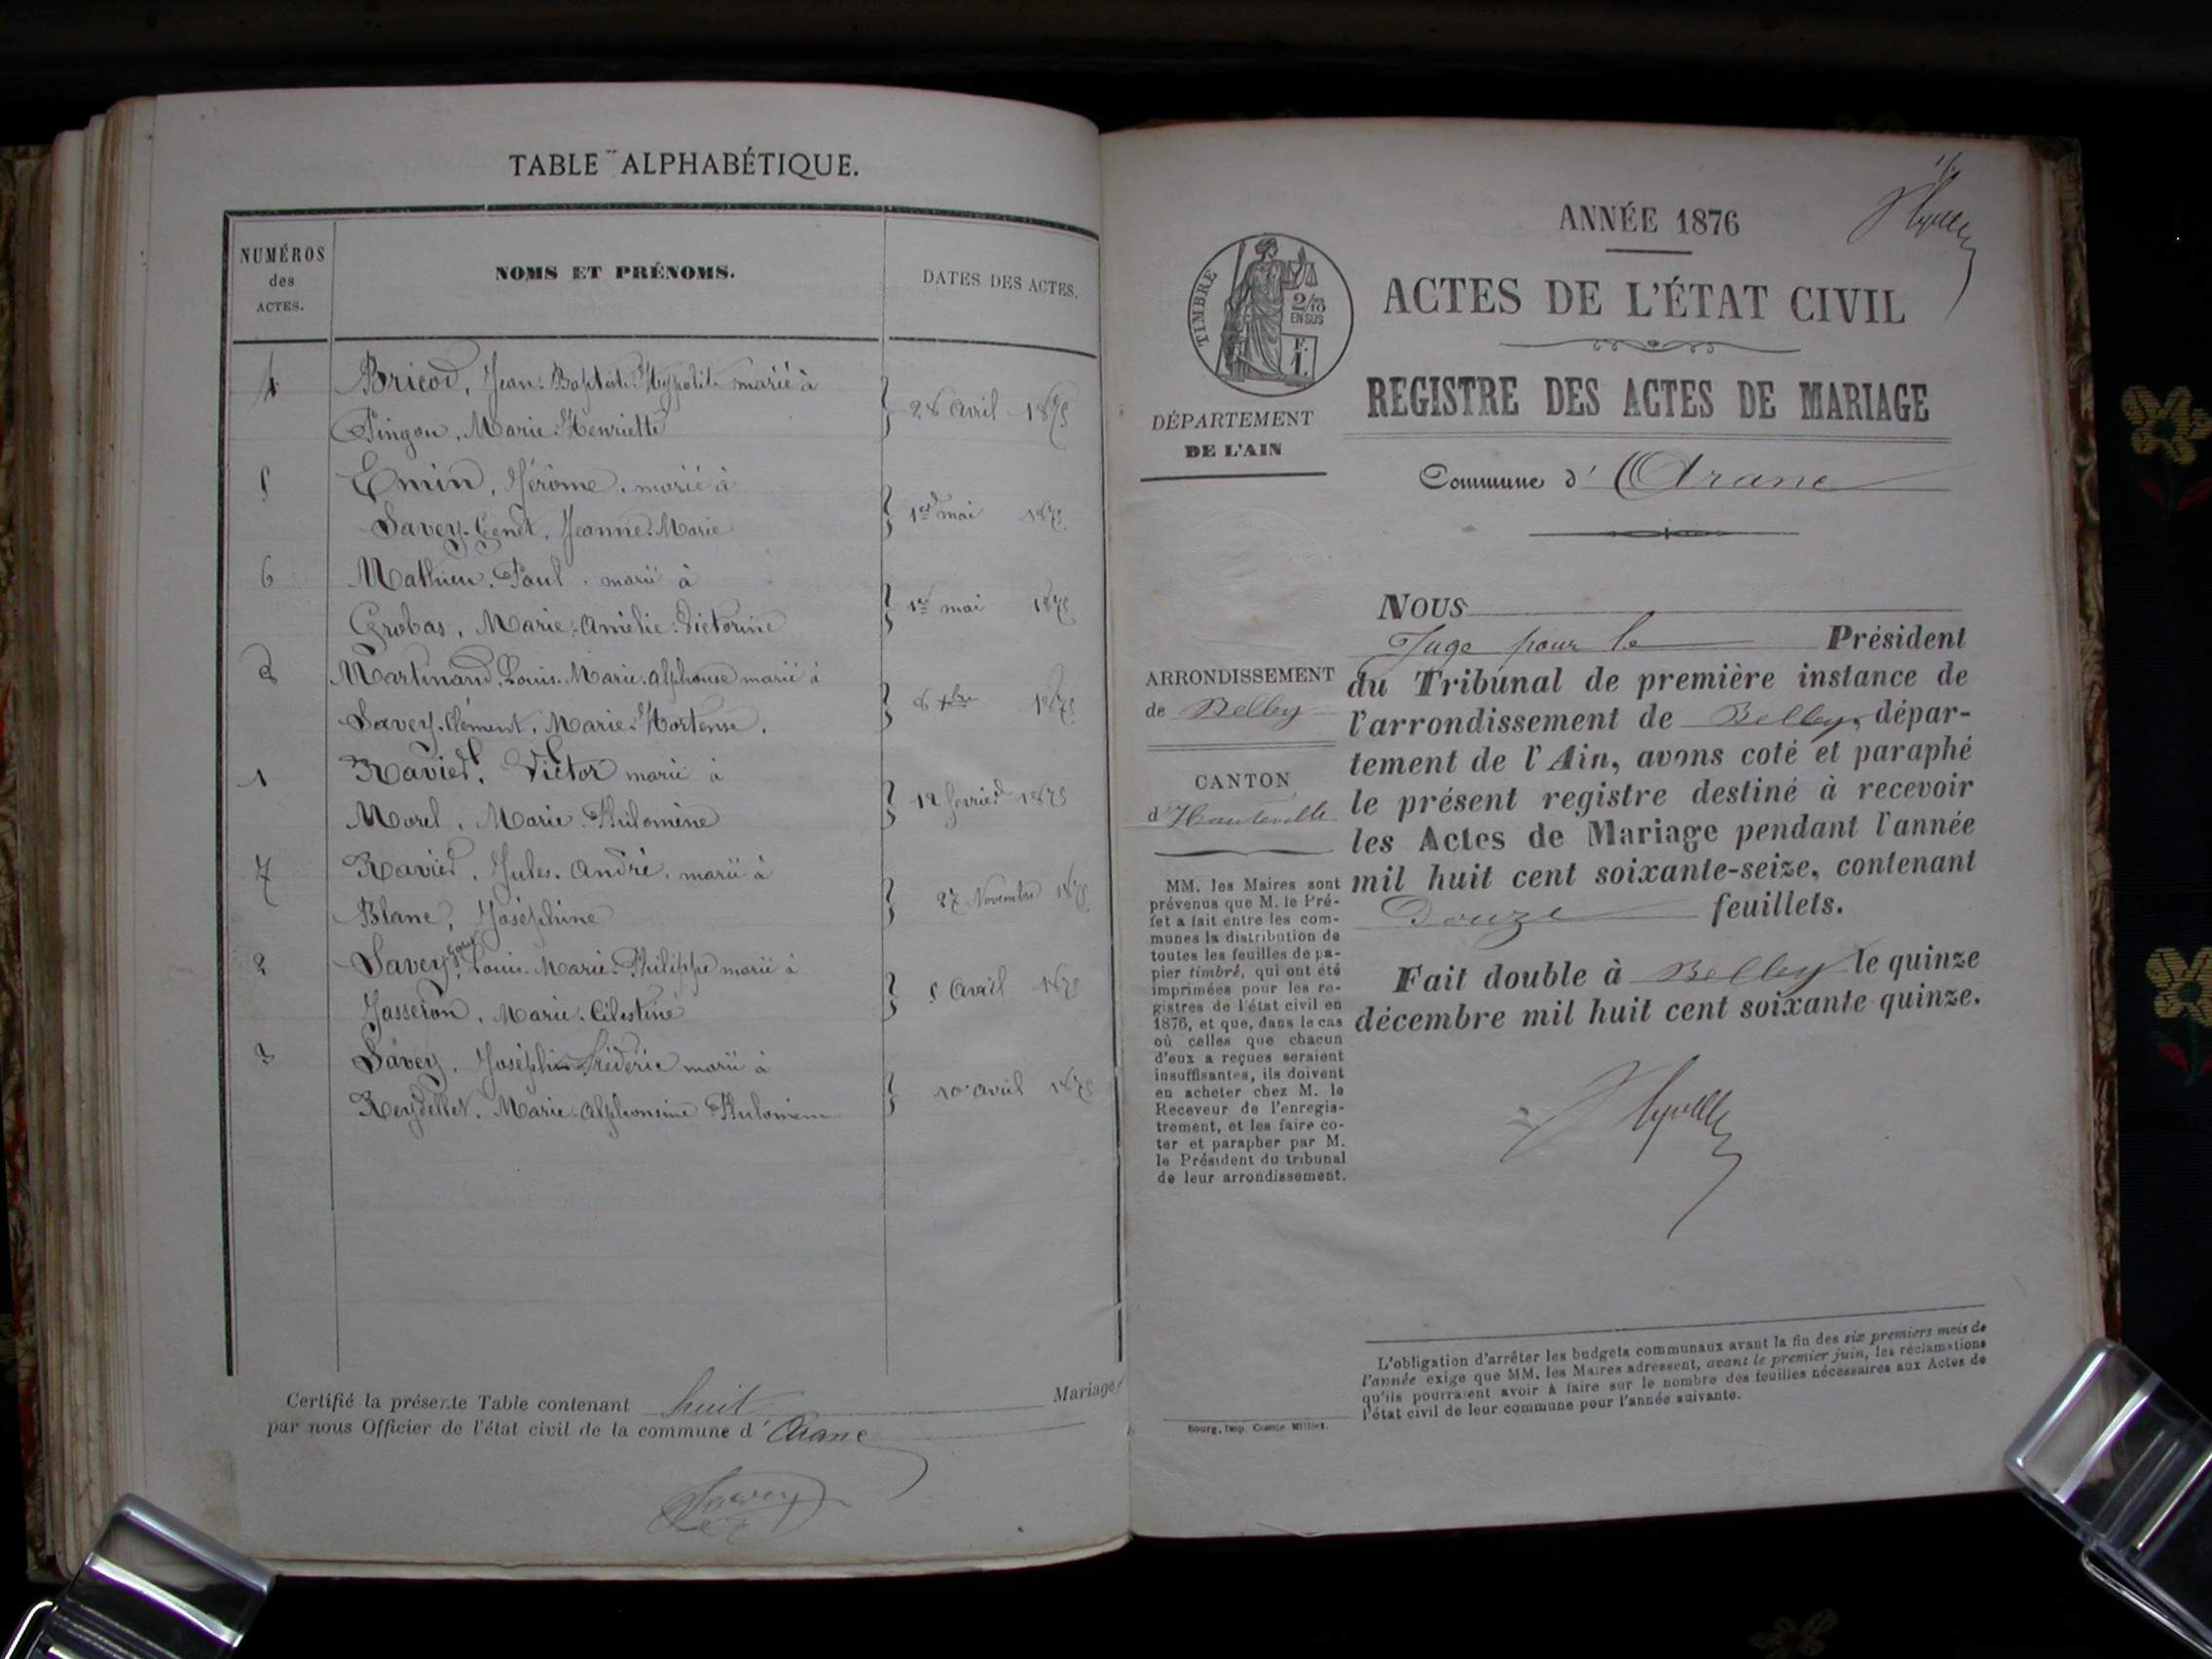 TABLE ALPHABÉTIQUE.
NUMÉROS
des
ACTES.
NOMS ET PRÉNOMS.
DATES DES ACTES.
4
Bricod, Jean-Baptiste-Hypolite marié à
28 Avril 1875
Pingon, Marie-Henriette
5
Emin, Jérôme, marié à
Savey-Genet, Jeanne-Marie
1er mai 1875
6
Mathieu, Paul. marié à
1er mai 1875
Grobas, Marie-Amélie-Victorine
8
Martinand, Louis-Marie-Alphonse marié à
8 xbre 1875
Savey-Clément, Marie-Hortense.
1
Ravier, Victor marié à
12 février 1875
Morel, Marie-Philomène
7
Ravier, Jules-André, marié à
27 Novembre 1875
Blanc, Joséphine
2
Savey, Louis-Marie-Philippe marié à
5 Avril 1875
Jasseron, Marie-Célestine
3
Savey, Frédéric marié à
10 avril 1875
Reydellet, Marie-Alphonsine
Certifié la présente Table contenant huit Mariage
par nous Officier de l'état civil de la commune d'Aranc
Savey
ANNÉE 1876
TIMBRE
2/10
EN SUS
F.
1.
ACTES DE L'ÉTAT CIVIL
REGISTRE DES ACTES DE MARIAGE
DÉPARTEMENT
DE L'AIN
Commune d'Aranc
ARRONDISSEMENT
de Belley
CANTON
d'Hauteville
MM. les Maires sont
prévenus que M. le Pré-
fet a fait entre les com-
munes la distribution de
toutes les feuilles de pa-
pier timbré, qui ont été
imprimées pour les re-
gistres de l'état civil en
1876, et que, dans le cas
où celles que chacun
d'eux a reçues seraient
insuffisantes, ils doivent
en acheter chez M. le
Receveur de l'enregis-
trement, et les faire co-
ter et parapher par M.
le Président du tribunal
de leur arrondissement.
NOUS
Juge pour le Président
du Tribunal de première instance de
l'arrondissement de Belley, dépar-
tement de l'Ain, avons coté et paraphé
le présent registre destiné à recevoir
les Actes de Mariage pendant l'année
mil huit cent soixante-seize, contenant
Douze feuillets.
Fait double à Belley le quinze
décembre mil huit cent soixante quinze.
L'obligation d'arrêter les budgets communaux avant la fin des six premiers mois de
l'année exige que MM. les Maires adressent, avant le premier juin, les réclamations
qu'ils pourraient avoir à faire sur le nombre des feuilles nécessaires aux Actes de
l'état civil de leur commune pour l'année suivante.
Bourg, Imp. Comte Milliet.